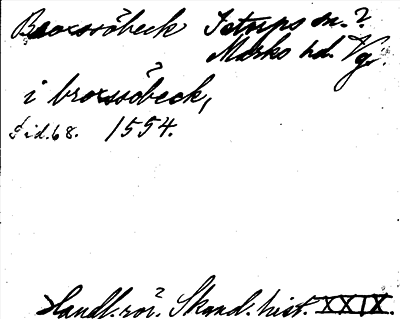 Brorssöbeck Istorps sn.?
Marks hd. Vg.
i brorssöbeck,
sid. 68. 1554.
Handl. rör. Skand. hist. XXIX.